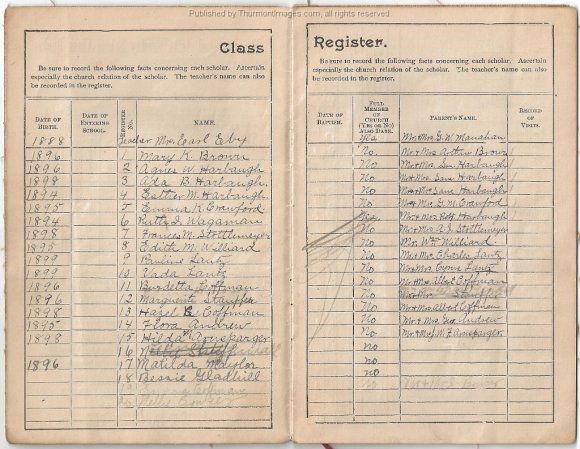 Published by ThurmontImages.com, all rights reserved.
Class
Be sure to record the following facts concerning each scholar. Ascertain
especially the church relation of the scholar. The teacher's name can also
be recorded in the register.
DATE OF BIRTH. DATE OF ENTERING SCHOOL. REGISTER No. NAME.
1888 Teacher Mrs. Earl Eby
1896 1 Mary K. Brown
1896 2 Agnes W. Harbaugh
1898 3 Ada B. Harbaugh
1894 4 Esther M. Harbaugh
1895 5 Emma K. Crawford
1894 6 Ruth I. Wagaman
1898 7 Frances M. Stottlemeyer
1895 8 Edith M. Williard
1899 9 Pauline Lantz
1899 10 Vada Lantz
1896 11 Burdetta Coffman
1896 12 Marguerite Stauffer
1898 13 Hazel Coffman
1895 14 Flora Andrew
1898 15 Hilda Arnsparger
16
1896 17 Matilda Naylor
18 Bessie Gladhill
Coffman
Nellie
Register.
Be sure to record the following facts concerning each scholar. Ascertain
especially the church relation of the scholar. The teacher's name can also
be recorded in the register.
DATE OF BAPTISM. FULL MEMBER OF CHURCH (YES OR NO) ALSO DATE. PARENT'S NAME. RECORD OF VISITS.
Yes Mr & Mrs G. W. Manahan
No. Mr & Mrs Arthur Brown
No Mr & Mrs Harbaugh
No Mr & Mrs Sam Harbaugh
No Mr & Mrs Sam Harbaugh
No Mr & Mrs G. M. Crawford
Yes Mr & Mrs Robt Harbaugh
No Mr & Mrs A. J. Stottlemeyer
No Mr. Wm Williard
No Mr & Mrs Charles Lantz
No Mr & Mrs Cyrus Lantz
No Mr & Mrs Albert Coffman
No Mr & Mrs Stauffer
No Mr & Mrs Albert Coffman
No Mr & Mrs Geo Andrew
No Mr & Mrs W. F. Arnsparger
no
no
no
no Mr & Mrs